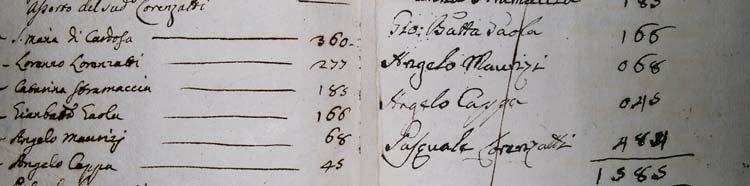 Asporto del sud.º Lorenzatti
- S. Maria di Cardosa 360
- Lorenzo Lorenzatti 277
- Catarina Stramaccia 185
- Gianbatta Paola 166
- Angelo Maurizj 68
- Angelo Cappa 45
185
Gio: Batta Paola 166
Angelo Maurizj 068
Angelo Cappa 045
Pasquale Lorenzatti 484
1585